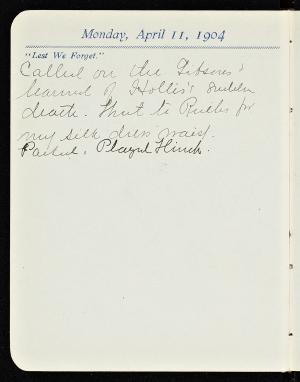 Monday, April 11, 1904
"Lest We Forget."
Called on the Gibsons'
learned of Hollis's sudden
death. Went to Ruths for
my silk dress waist.
Packed. Played Flinch.